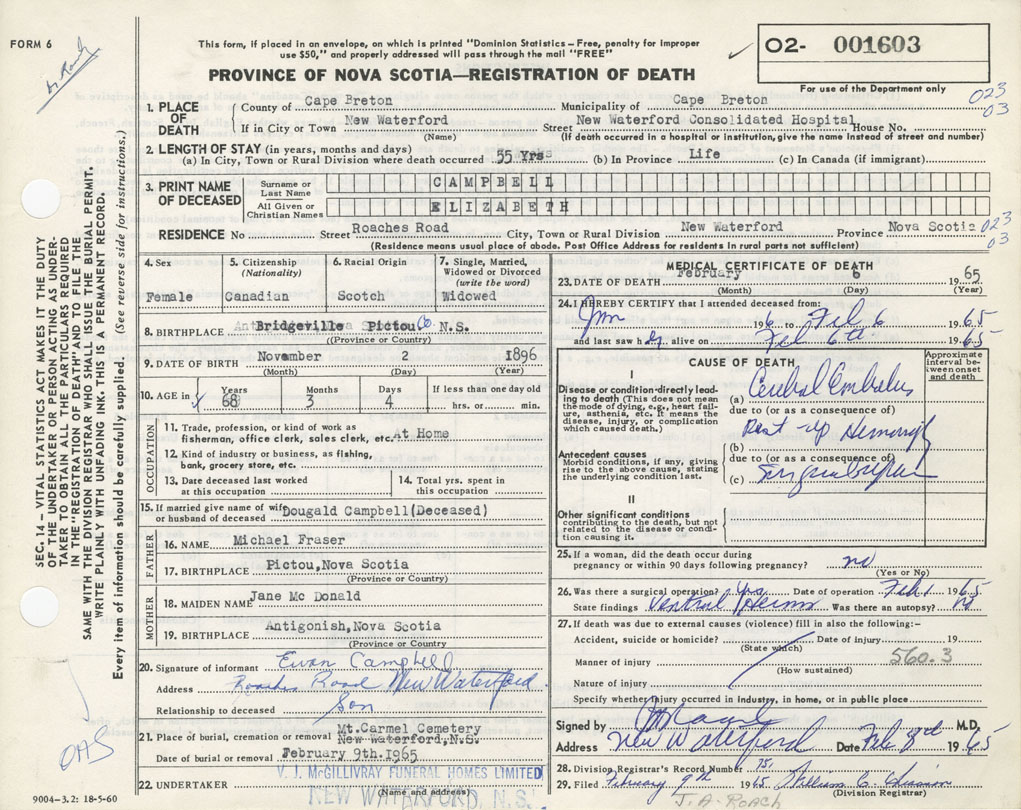 FORM 6
This form, if placed in an envelope, on which is printed "Dominion Statistics – Free, penalty for improper
use $50," and properly addressed will pass through the mail "FREE"
O2- 001603
PROVINCE OF NOVA SCOTIA—REGISTRATION OF DEATH
For use of the Department only
023
03
1. PLACE OF DEATH
County of Cape Breton Municipality of Cape Breton
If in City or Town New Waterford Street New Waterford Consolidated Hospital House No.
(Name) (If death occurred in a hospital or institution, give the name instead of street and number)
2. LENGTH OF STAY (in years, months and days)
(a) In City, Town or Rural Division where death occurred 55 Yrs (b) In Province Life (c) In Canada (if immigrant)
3. PRINT NAME OF DECEASED
Surname or Last Name CAMPBELL
All Given or Christian Names ELIZABETH
RESIDENCE No Street Roaches Road City, Town or Rural Division New Waterford Province Nova Scotia
023
03
(Residence means usual place of abode. Post Office Address for residents in rural parts not sufficient)
4. Sex
Female
5. Citizenship (Nationality)
Canadian
6. Racial Origin
Scotch
7. Single, Married, Widowed or Divorced (write the word)
Widowed
8. BIRTHPLACE Bridgeville Pictou Co N.S.
(Province or Country)
9. DATE OF BIRTH November 2 1896
(Month) (Day) (Year)
10. AGE in Years Months Days If less than one day old
68 3 4 hrs. or min.
OCCUPATION
11. Trade, profession, or kind of work as
fisherman, office clerk, sales clerk, etc. At Home
12. Kind of industry or business, as fishing,
bank, grocery store, etc.
13. Date deceased last worked
at this occupation
14. Total yrs. spent in
this occupation
15. If married give name of wife
or husband of deceased Dougald Campbell(Deceased)
FATHER
16. NAME Michael Fraser
17. BIRTHPLACE Pictou,Nova Scotia
(Province or Country)
MOTHER
18. MAIDEN NAME Jane Mc Donald
19. BIRTHPLACE Antigonish,Nova Scotia
(Province or Country)
20. Signature of informant Ewan Campbell
Address Roaches Road New Waterford
Relationship to deceased Son
21. Place of burial, cremation or removal Mt.Carmel Cemetery
New Waterford,N.S.
Date of burial or removal February 9th.1965
22. UNDERTAKER V. J. McGILLIVRAY FUNERAL HOMES LIMITED
(Name and address)
NEW WATERFORD, N. S.
MEDICAL CERTIFICATE OF DEATH
23. DATE OF DEATH February 6 1965
(Month) (Day) (Year)
24. I HEREBY CERTIFY that I attended deceased from:
196 to Feb 6 1965
and last saw h alive on Feb 6 1965
CAUSE OF DEATH
Approximate interval between onset and death
I
Disease or condition directly leading to death (This does not mean
the mode of dying, e.g., heart failure, asthenia, etc. It means the
disease, injury, or complication
which caused death.)
(a) Cerebral Embolus
due to (or as a consequence of)
(b)
Antecedent causes
Morbid conditions, if any, giving
rise to the above cause, stating
the underlying condition last.
due to (or as a consequence of)
(c)
II
Other significant conditions
contributing to the death, but not
related to the disease or condition causing it.
25. If a woman, did the death occur during
pregnancy or within 90 days following pregnancy? no
(Yes or No)
26. Was there a surgical operation? Yes Date of operation Feb 1 1965
State findings Ventral Hernia Was there an autopsy? no
27. If death was due to external causes (violence) fill in also the following:–
Accident, suicide or homicide? Date of injury 19
(State which)
Manner of injury 560.3
(How sustained)
Nature of injury
Specify whether injury occurred in industry, in home, or in public place
Signed by M.D.
Address New Waterford Date Feb 8 1965
28. Division Registrar's Record Number 75
29. Filed February 9th 1965 William C.
(Division Registrar)
J. A. ROACH
SEC. 14 – VITAL STATISTICS ACT MAKES IT THE DUTY
OF THE UNDERTAKER OR PERSON ACTING AS UNDERTAKER TO OBTAIN ALL THE PARTICULARS REQUIRED
IN THE "REGISTRATION OF DEATH" AND TO FILE THE
SAME WITH THE DIVISION REGISTRAR WHO SHALL ISSUE THE BURIAL PERMIT.
WRITE PLAINLY WITH UNFADING INK. THIS IS A PERMANENT RECORD.
Every item of information should be carefully supplied. (See reverse side for instructions.)
OAS
9004–3.2: 18-5-60